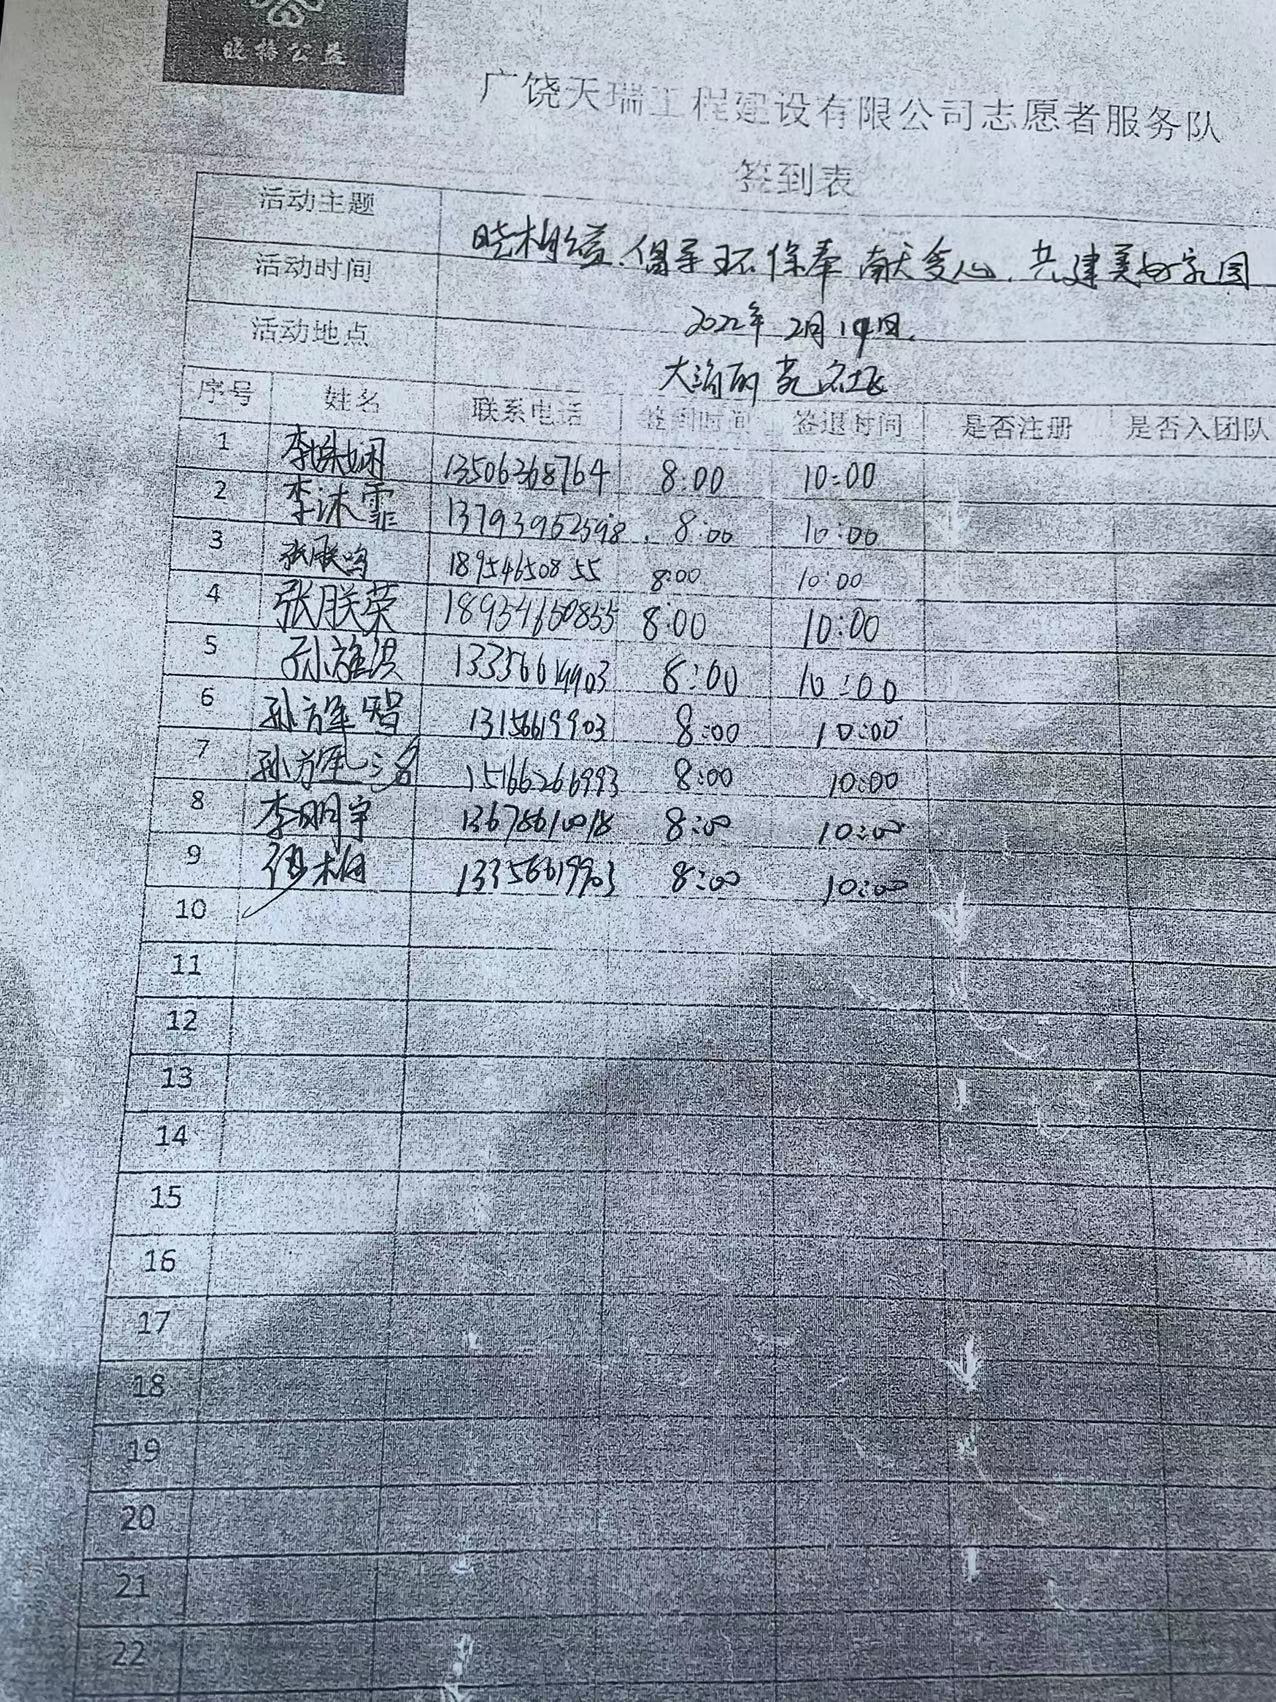 晓梅公益
广饶天瑞工程建设有限公司志愿者服务队
签到表
活动主题 倡导环保奉献爱心.共建美好家园
活动时间 2022年2月19日.
活动地点 大海丽苑社区
序号 姓名 联系电话 签到时间 签退时间 是否注册 是否入团队
1 李姝娴 13506368764 8:00 10:00
2 李沐霏 13793952598 8:00 10:00
3 张朕鸣 18954650855 8:00 10:00
4 张朕荣 18954650855 8:00 10:00
5 13356619903 8:00 10:00
6 13156619903 8:00 10:00
7 15166266993 8:00 10:00
8 李明宇 13678610018 8:00 10:00
9 13356619903 8:00 10:00
10
11
12
13
14
15
16
17
18
19
20
21
22